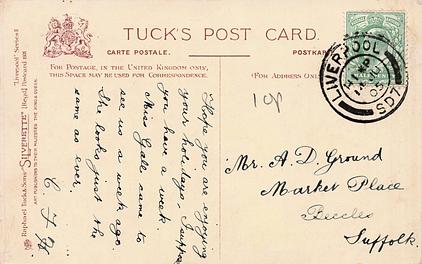 TUCK'S POST CARD.
CARTE POSTALE.
POSTKAR
FOR POSTAGE, IN THE UNITED KINGDOM ONLY,
THIS SPACE MAY BE USED FOR CORRESPONDENCE.
(FOR ADDRESS ONL
Raphael Tuck & Sons' "SILVERETTE"
ART PUBLISHERS TO THEIR MAJESTIES THE KING & QUEEN.
Hope you are enjoying
your holidays. I suppose
you have a week.
Miss Gale came to
see us a week ago.
She looks just the
same as ever.
LIVERPOOL
SD7
Mr. A. D. Ground
Market Place
Beccles
Suffolk.